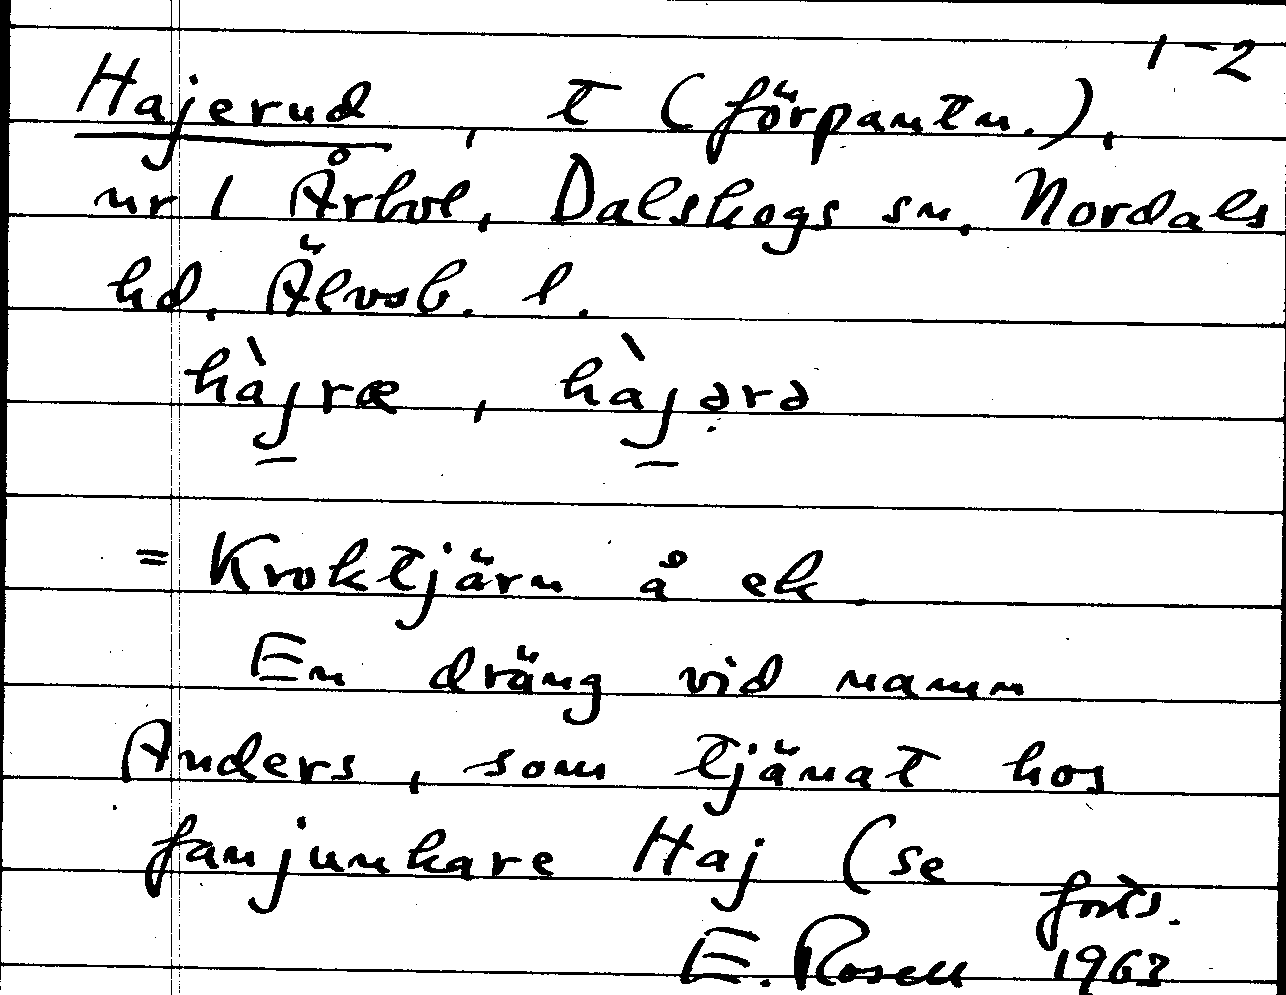 1-2
Hajerud, t (förpantn.),
nr 1 Årbol, Dalskogs sn, Nordals
hd, Älvsb. l.
hàjræ, hàjərə
= Kroktjärn å ek.
En dräng vid namn
Anders, som tjänat hos
fanjunkare Haj (se
forts.
E. Rosell 1963